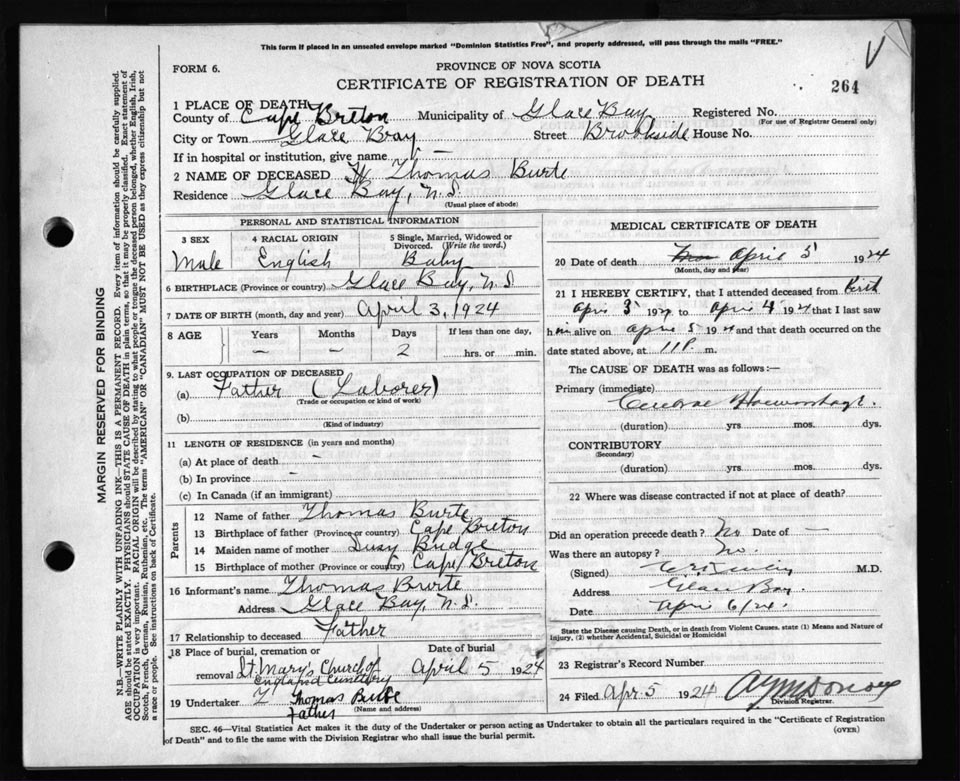 This form if placed in an unsealed envelope marked "Dominion Statistics Free", and properly addressed, will pass through the mails "FREE."
V
FORM 6.
PROVINCE OF NOVA SCOTIA
CERTIFICATE OF REGISTRATION OF DEATH
264
1 PLACE OF DEATH
County of Cape Breton Municipality of Glace Bay Registered No.
(For use of Registrar General only)
City or Town Glace Bay Street Brookside House No.
If in hospital or institution, give name —
2 NAME OF DECEASED Thomas Burte
Residence Glace Bay, N.S.
(Usual place of abode)
PERSONAL AND STATISTICAL INFORMATION
3 SEX Male
4 RACIAL ORIGIN English
5 Single, Married, Widowed or Divorced. (Write the word.) Baby
6 BIRTHPLACE (Province or country) Glace Bay, N.S
7 DATE OF BIRTH (month, day and year) April 3, 1924
8 AGE Years — Months — Days 2 If less than one day, hrs. or min.
9. LAST OCCUPATION OF DECEASED
(a) Father (Laborer)
(Trade or occupation or kind of work)
(b)
(Kind of industry)
11 LENGTH OF RESIDENCE (in years and months)
(a) At place of death —
(b) In province —
(c) In Canada (if an immigrant)
Parents
12 Name of father Thomas Burte
13 Birthplace of father (Province or country) Cape Breton
14 Maiden name of mother Budge
15 Birthplace of mother (Province or country) Cape Breton
16 Informant's name Thomas Burte
Address Glace Bay, N.S.
17 Relationship to deceased Father
18 Place of burial, cremation or removal St. Mary's Church of England Cemetery
Date of burial April 5 1924
19 Undertaker Thomas Burte
Father
(Name and address)
MEDICAL CERTIFICATE OF DEATH
20 Date of death April 5 1924
(Month, day and year)
21 I HEREBY CERTIFY, that I attended deceased from Birth
Apr 3 1924 to Apr 4 1924 that I last saw
him alive on Apr 5 1924 and that death occurred on the
date stated above, at 11 P. m.
The CAUSE OF DEATH was as follows:—
Primary (immediate)
Cerebral Haemorrhage.
(duration) yrs. mos. dys.
CONTRIBUTORY
(Secondary)
(duration) yrs. mos. dys.
22 Where was disease contracted if not at place of death?
Did an operation precede death? No Date of —
Was there an autopsy? No.
(Signed) M.D.
Address Glace Bay
Date Apr 6/24.
State the Disease causing Death, or in death from Violent Causes, state (1) Means and Nature of Injury, (2) whether Accidental, Suicidal or Homicidal
23 Registrar's Record Number
24 Filed Apr 5 1924
Division Registrar.
SEC. 46—Vital Statistics Act makes it the duty of the Undertaker or person acting as Undertaker to obtain all the particulars required in the "Certificate of Registration
of Death" and to file the same with the Division Registrar who shall issue the burial permit.
(OVER)
MARGIN RESERVED FOR BINDING
N.B.—WRITE PLAINLY WITH UNFADING INK—THIS IS A PERMANENT RECORD. Every item of information should be carefully supplied.
AGE should be stated EXACTLY. PHYSICIANS should STATE CAUSE OF DEATH in plain terms, so that it may be properly classified. Exact statement of
OCCUPATION is very important. RACIAL ORIGIN will be described by stating to what people or tongue the deceased person belonged, whether English, Irish,
Scotch, French, German, Russian, Ruthenian, etc. The terms "AMERICAN" or "CANADIAN" MUST NOT BE USED as they express citizenship but not
a race or people. See instructions on back of Certificate.